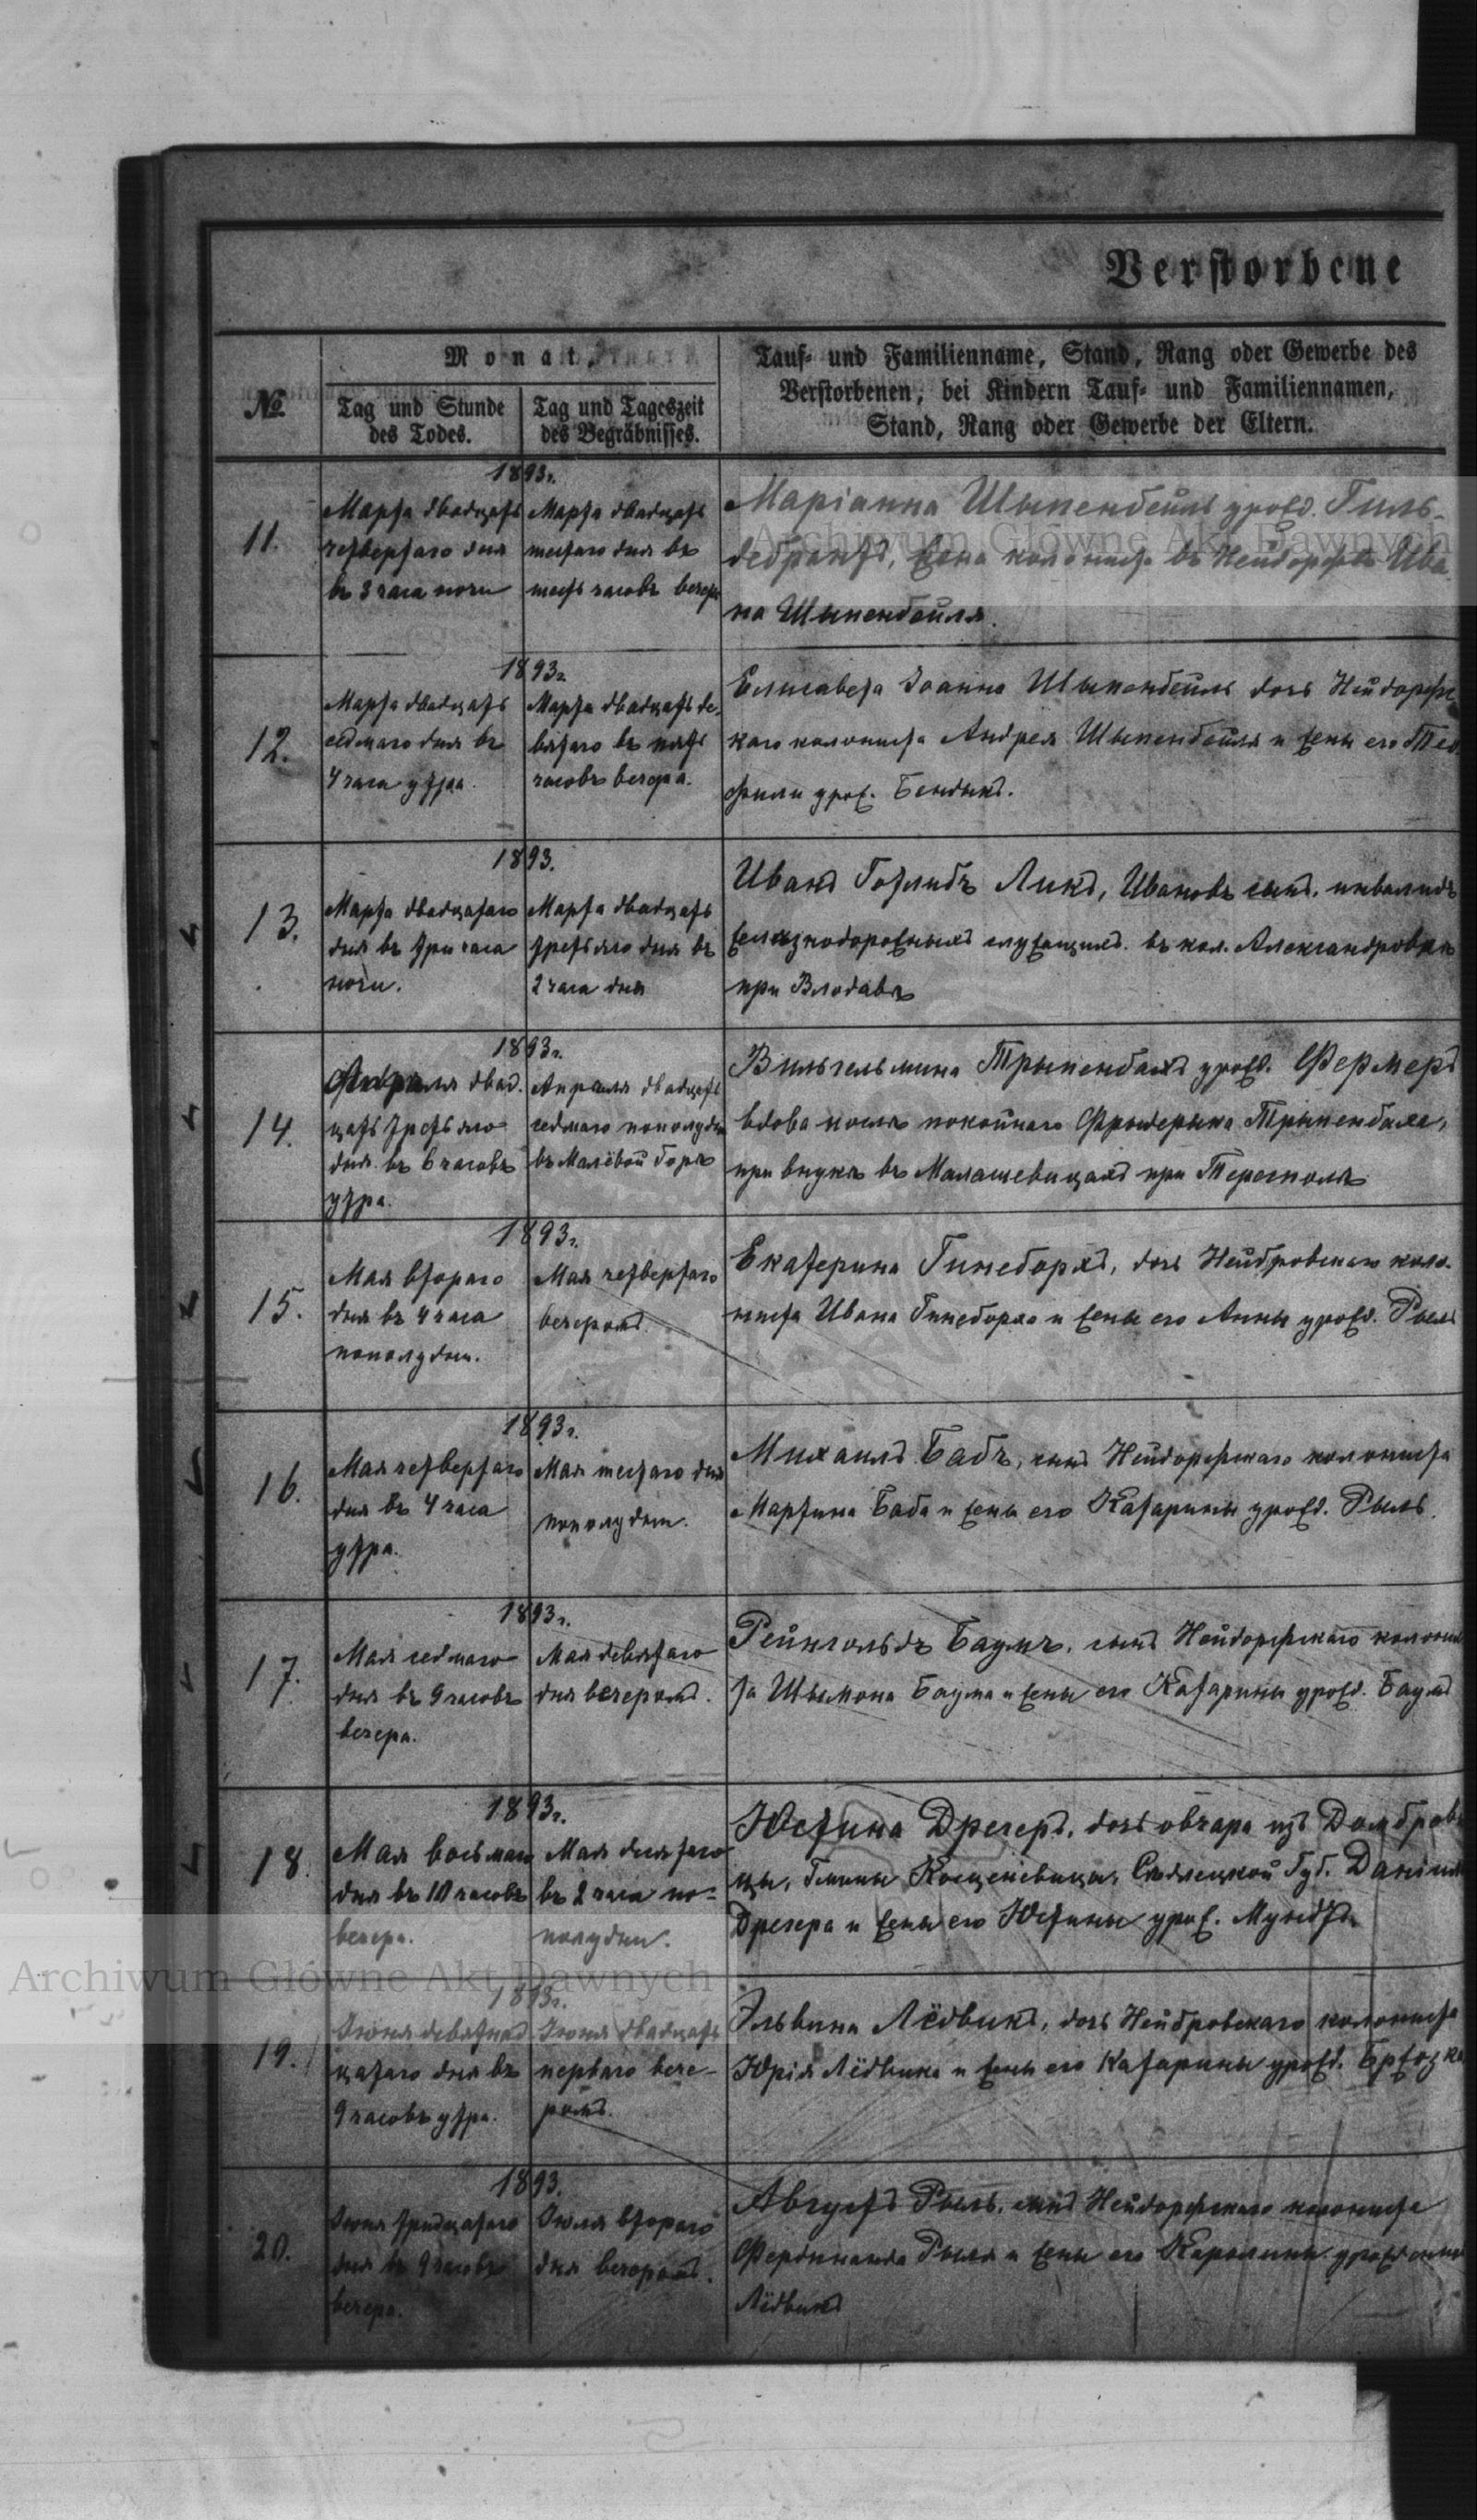 Verstorbene
№
Monat.
Tag und Stunde
des Todes.
Tag und Tageszeit
des Begräbnisses.
Tauf- und Familienname, Stand, Rang oder Gewerbe des
Verstorbenen, bei Kindern Tauf- und Familiennamen,
Stand, Rang oder Gewerbe der Eltern.
11.
1893г.
Марта двадцать
четвертаго дня
въ 3 часа ночи
Марта двадцать
шестаго дня въ
шесть часовъ вечера
Маріанна Шыпенбейль урожд. Гиль-
дебрантъ, жена колониста въ Нейдорфѣ Ива
на Шыпенбейля.
12.
1893г.
Марта двадцать
седмаго дня въ
4 часа утра.
Марта двадцать де-
вятаго въ пять
часовъ вечера.
Елисавета Іоанна Шыпенбейль дочь Нейдорфс
каго колониста Андрея Шыпенбейля и жены его Тео
фили урож. Бендыкъ.
13.
1893.
Марта двадцатаго
дня въ три часа
ночи.
Марта двадцать
третьяго дня въ
2 часа дня
Иванъ Готлибъ Ликъ, Ивановъ сынъ, инвалидъ
желѣзнодорожныхъ служащихъ въ кол. Александровкѣ
при Влодавѣ
14.
1893г.
Апрѣля двад.
цать третьяго
дня въ 6 часовъ
утра.
Апрѣля двадцать
седмаго пополудни
въ Малёвой Горѣ
Вильгельмина Трыпенбахъ урожд. Фермеръ
вдова послѣ покойнаго Фрыдерыка Трыпенбаха,
при внукѣ въ Малашевицахъ при Тересполѣ
15.
1893г.
Мая втораго
дня въ 4 часа
пополудни.
Мая четвертаго
вечеромъ
Екатерина Гинеборхъ, дочь Нейбровскаго коло-
ниста Ивана Гинеборха и жены его Анны урожд. Рыль
16.
1893г.
Мая четвертаго
дня въ 4 часа
утра.
Мая шестаго дня
пополудни.
Михаилъ Бабъ, сынъ Нейдорфскаго колониста
Мартина Баба и жены его Катарины урожд. Рыль.
17.
1893г.
Мая седмаго
дня въ 9 часовъ
вечера.
Мая девятаго
дня вечеромъ.
Рейнгольдъ Баумъ, сынъ Нейдорфскаго колонис
та Шымона Баума и жены его Катарины урожд. Баумъ
18.
1893г.
Мая восьмаго
дня въ 10 часовъ
вечера.
Мая десятаго
въ 2 часа по-
полудни.
Юстина Дрегеръ, дочь овчара изъ Домброви
цы, Гмины Кощеневицы, Сѣдлецкой Губ. Даніила
Дрегера и жены его Юстины урож. Мундтъ
19.
1893г.
Іюня девятнад
цатаго дня въ
9 часовъ утра.
Іюня двадцать
перваго вече-
ромъ.
Эльвина Лёдвикъ, дочь Нейбровскаго колониста
Юрія Лёдвика и жены его Катарины урожд.
20.
1893.
Іюня тридцатаго
дня въ 9 часовъ
вечера.
Іюля втораго
дня вечеромъ.
Августъ Рыль, сынъ Нейдорфскаго колониста
Фердинанда Рыля и жены его Каролины урожденной
Лёдвикъ
Archiwum Główne Akt Dawnych
Archiwum Główne Akt Dawnych